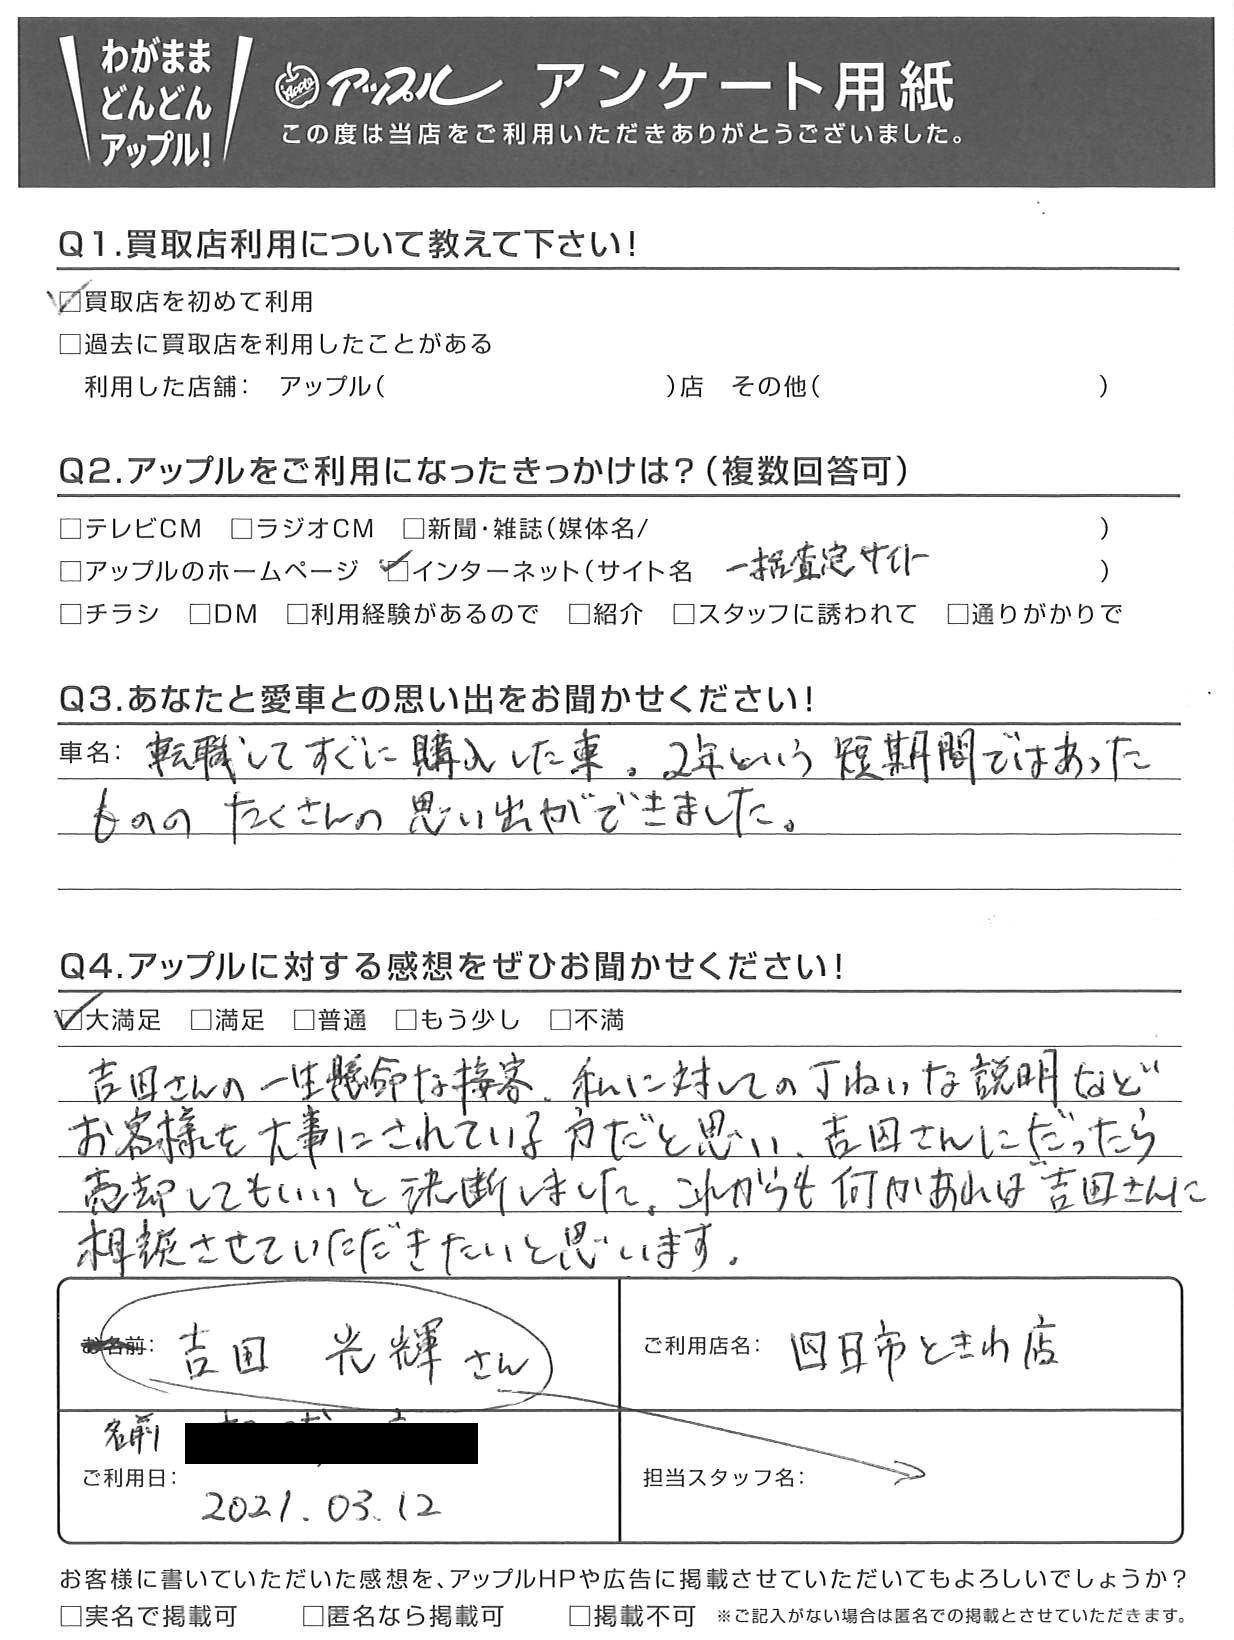 わがまま
どんどん
アップル!
Apple アップル アンケート用紙
この度は当店をご利用いただきありがとうございました。
Q1.買取店利用について教えて下さい!
☑買取店を初めて利用
□過去に買取店を利用したことがある
利用した店舗: アップル( )店 その他( )
Q2.アップルをご利用になったきっかけは?(複数回答可)
□テレビCM □ラジオCM □新聞・雑誌(媒体名/ )
□アップルのホームページ ☑インターネット(サイト名 一括査定サイト )
□チラシ □DM □利用経験があるので □紹介 □スタッフに誘われて □通りがかりで
Q3.あなたと愛車との思い出をお聞かせください!
車名: 転職してすぐに購入した車。2年という短期間ではあった
もののたくさんの思い出ができました。
Q4.アップルに対する感想をぜひお聞かせください!
☑大満足 □満足 □普通 □もう少し □不満
吉田さんの一生懸命な接客、私に対しての丁ねいな説明など
お客様を大事にされている方だと思い、吉田さんにだったら
売却してもいいと決断しました。これからも何かあれば吉田さんに
相談させていただきたいと思います。
お名前: 吉田 光輝さん
ご利用店名: 四日市ときわ店
名前
ご利用日: 2021.03.12
担当スタッフ名:
お客様に書いていただいた感想を、アップルHPや広告に掲載させていただいてもよろしいでしょうか?
□実名で掲載可 □匿名なら掲載可 □掲載不可 ※ご記入がない場合は匿名での掲載とさせていただきます。